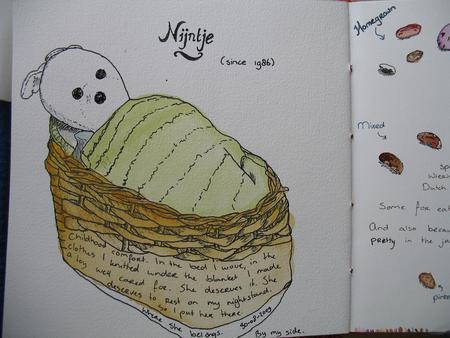 Nijntje
(since 1986)
Childhood comfort. In the bed I wove, in the
clothes I knitted under the blanket I made
a toy well cared for. She deserves it. She
deserves to rest on my nightstand.
So I put her there
where she belongs.
By my side.
Homegrown
Mixed
Dutch
Some for eat
And also becau
pretty in the ja